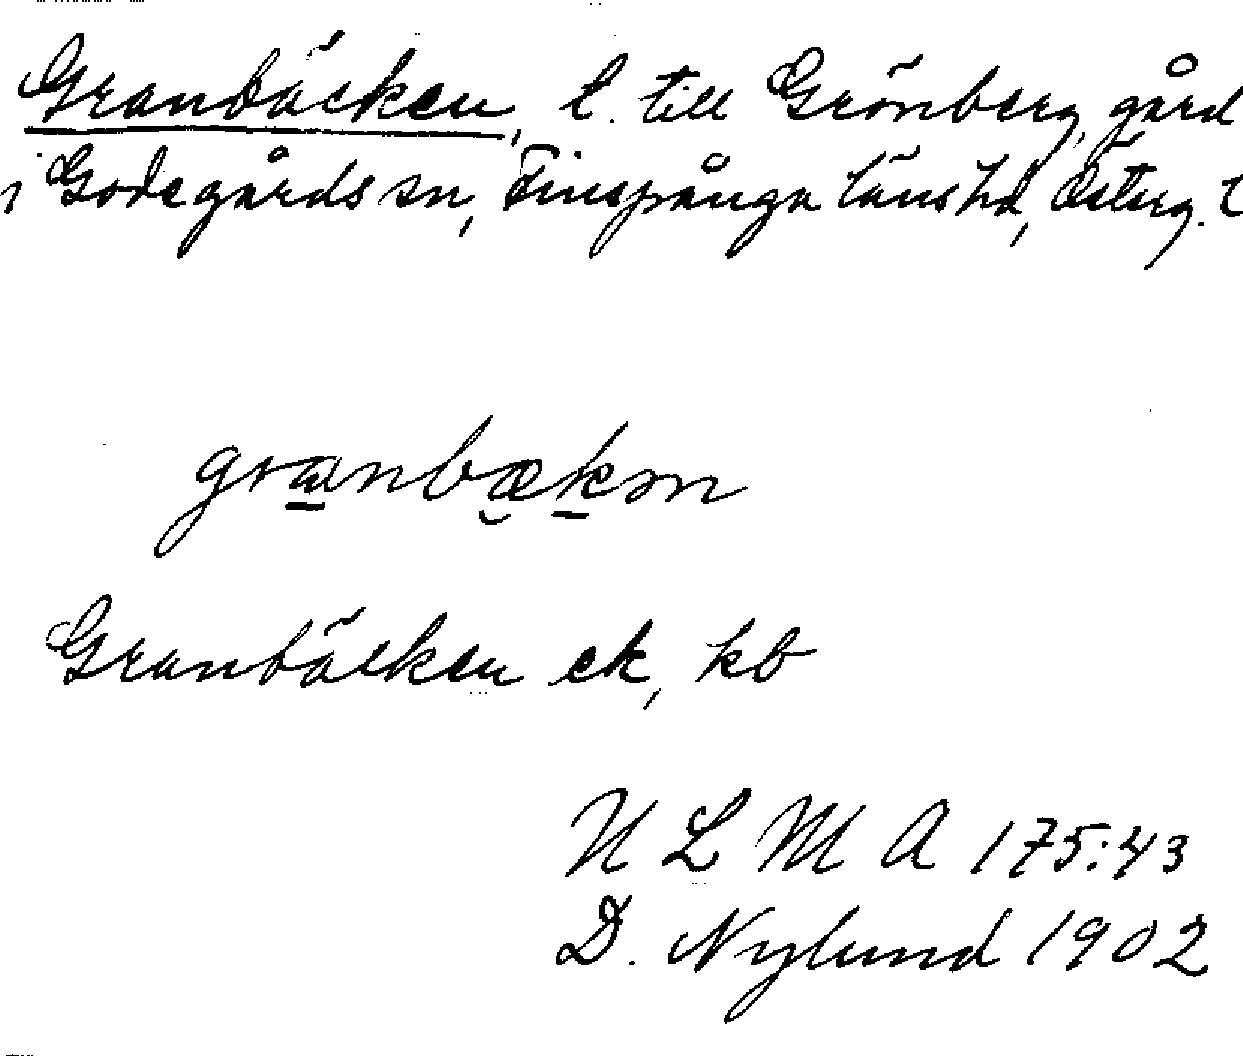 Granbäcken, t. till Grönberg, gård
i Godegårds sn, Finspånga läns hd, Österg. l
granbækən
Granbäcken ek, kb
U L M A 175:43
D. Nylund 1902